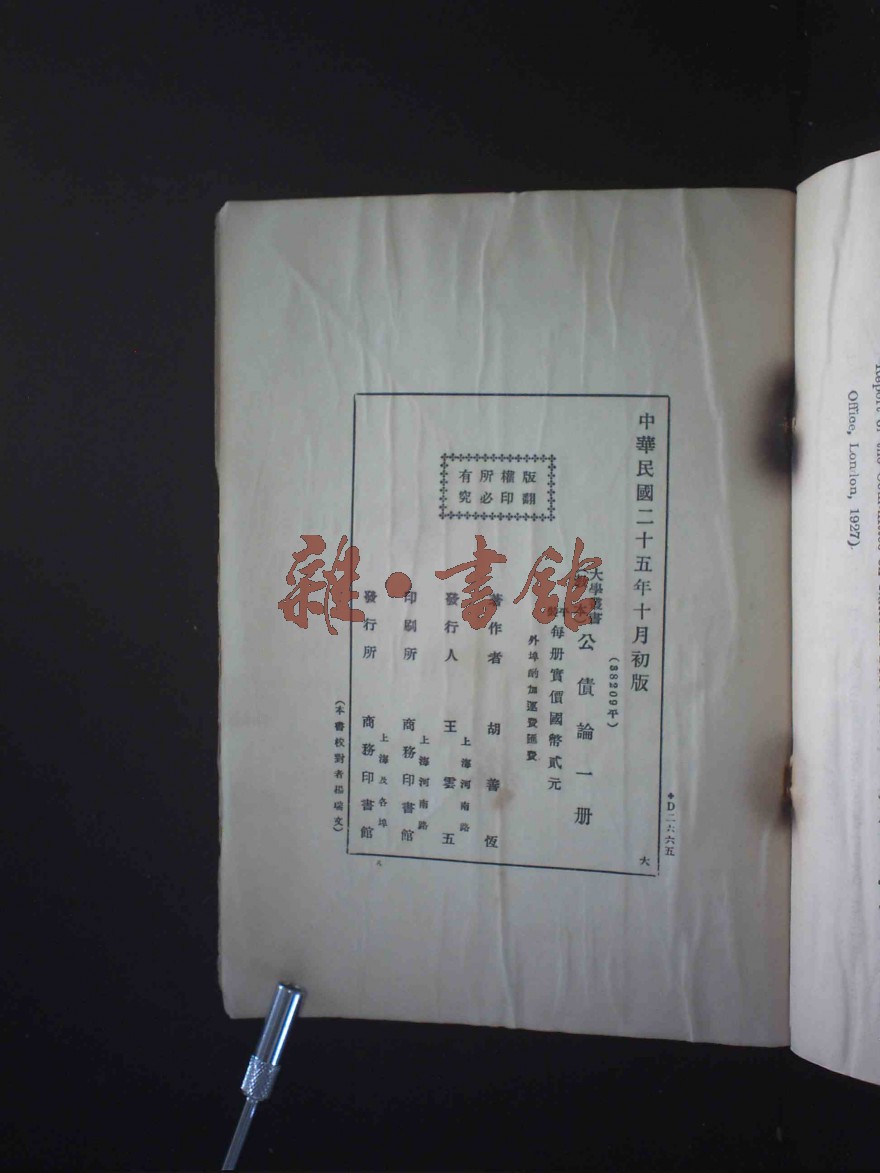 中華民國二十五年十月初版
(38209平)
大學叢書
(教本)公債論一册
平
每册實價國幣貳元
外埠酌加運費匯費
版權所有
翻印必究
著作者 胡善恆
上海河南路
發行人 王雲五
上海河南路
印刷所 商務印書館
上海及各埠
發行所 商務印書館
(本書校對者楊瑞文)
*D二六六五
大
雜·書館
Office, London, 1927).